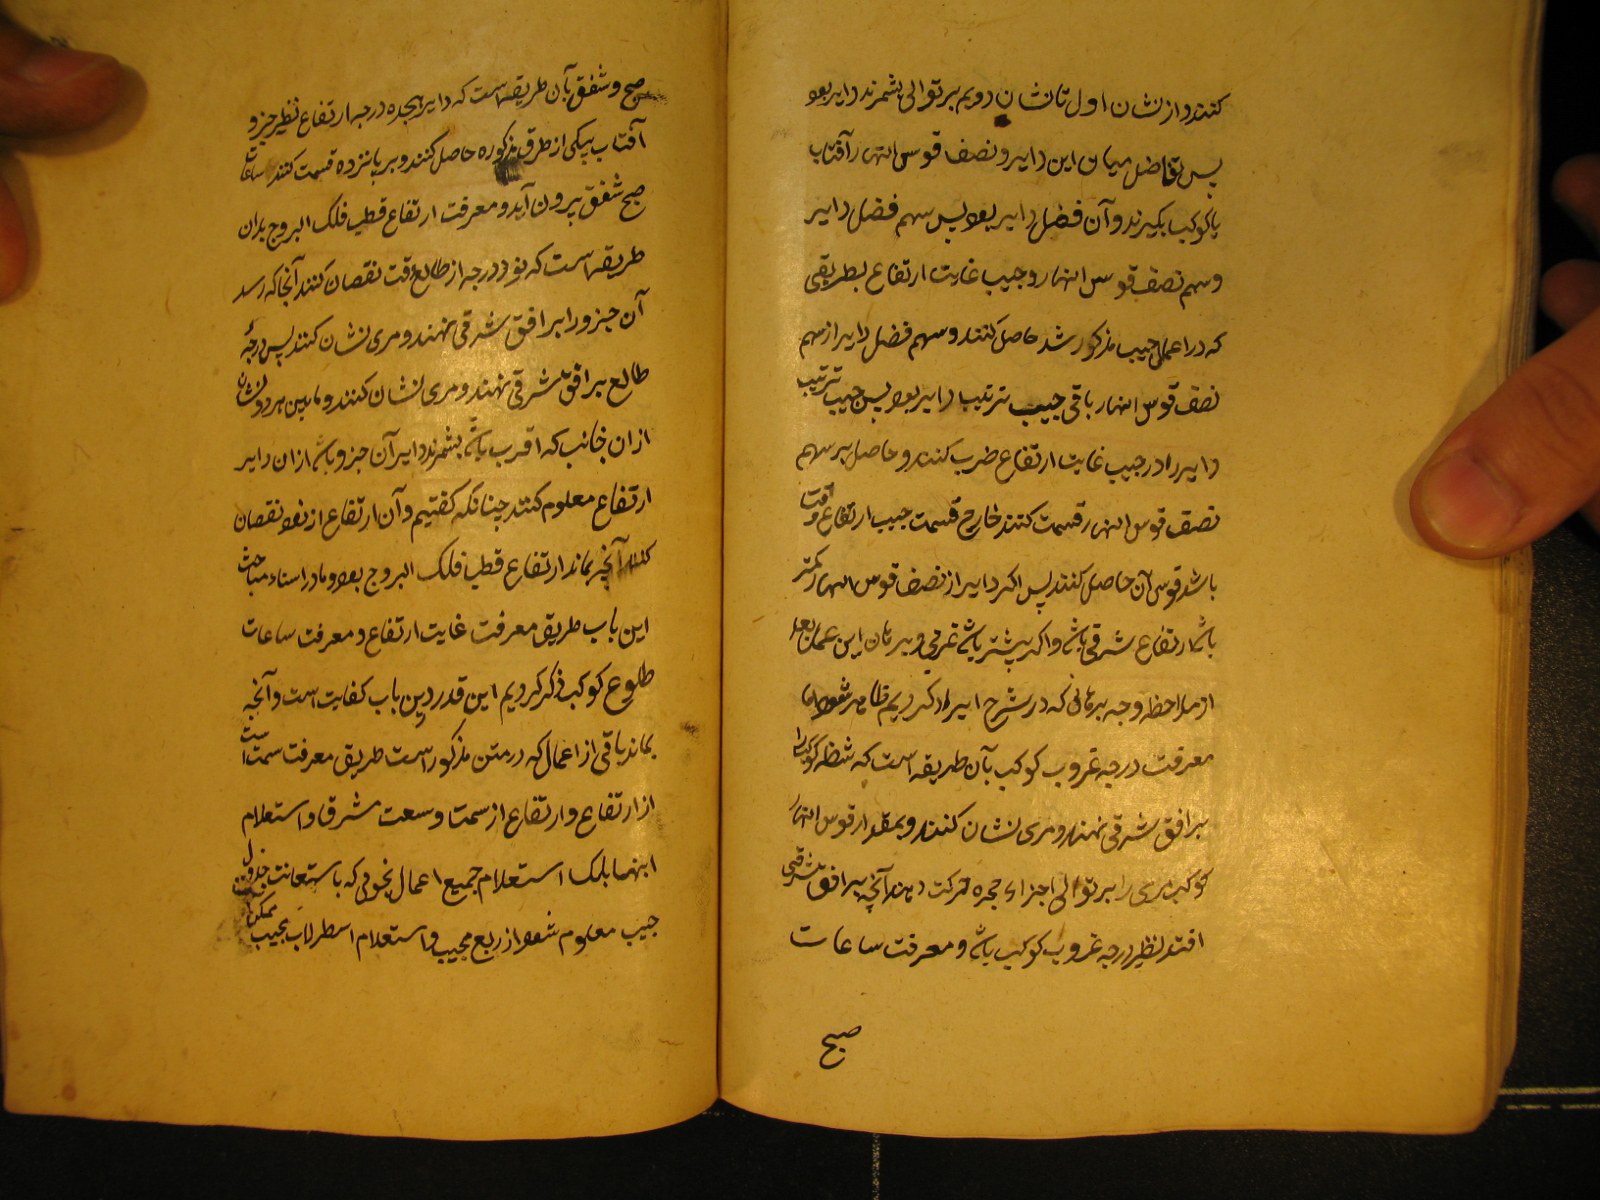 کنند و از نشان اول تا نشان دویم بر توالی بشمرند دایر بود
پس تفاضل میان این دایر و نصف قوس النهار آفتاب
یا کوکب بگیرند و آن فضل دایر بود پس سهم فضل دایر
و سهم نصف قوس النهار و جیب غایت ارتفاع بطریقی
که در اعمال جیب مذکور شد حاصل کنند و سهم فضل دایر از سهم
نصف قوس النهار باقی جیب ترتیب دایر بود پس جیب ترتیب
دایر را در جیب غایت ارتفاع ضرب کنند و حاصل بر سهم
نصف قوس النهار قسمت کنند خارج قسمت جیب ارتفاع وقت
باشد قوس آن حاصل کنند پس اکر دایر از نصف قوس النهار کمتر
باشد ارتفاع شرقی باشد و اکر بیشتر باشد غربی و برهان این عمل بعد
از ملاحظه وجه برهانی که در شرح ایراد کردیم ظاهر شود اما
معرفت درجه غروب کوکب بآن طریقه است که شظیه کوکب را
بر افق شرقی نهند و مری نشان کنند و بمقدار قوس النهار
کوکب مری را بر توالی اجزاء حجره حرکت دهند آنچه بر افق شرقی
افتد نظیر درجه غروب کوکب باشد و معرفت ساعات
صبح
صبح و شفق بآن طریقه است که دایر هجده درجه ارتفاع نظیر جزو
آفتاب بیکی از طرق مذکوره حاصل کنند و بر پانزده قسمت کنند ساعات
صبح شفق بیرون آید و معرفت ارتفاع قطب فلک البروج بدان
طریقه است که نود درجه از طالع وقت نقصان کنند آنجا که رسد
آن جزو را بر افق شرقی نهند و مری نشان کنند پس درجهٔ
طالع بر افق شرقی نهند و مری نشان کنند و مابین هر دو نشان
از ان جانب که اقرب باشد بشمرند دایر آن جزو باشد از ان دایر
ارتفاع معلوم کنند چنانکه کفتیم و آن ارتفاع از نود نقصان
کنند آنچه بماند ارتفاع قطب فلک البروج بود و ما در اسناء مباحث
این باب طریق معرفت غایت ارتفاع و معرفت ساعات
طلوع کوکب ذکر کردیم این قدر درین باب کفایت است و آنچه
بماند باقی از اعمال که در متن مذکور است طریق معرفت سمت است
از ارتفاع و ارتفاع از سمت و سعت مشرق و استعلام
اینها بلک استعلام جمیع اعمال نجومی که باستعانت جدول
جیب معلوم شود از ربع مجیب و استعلام اسطرلاب بجیب ممکن